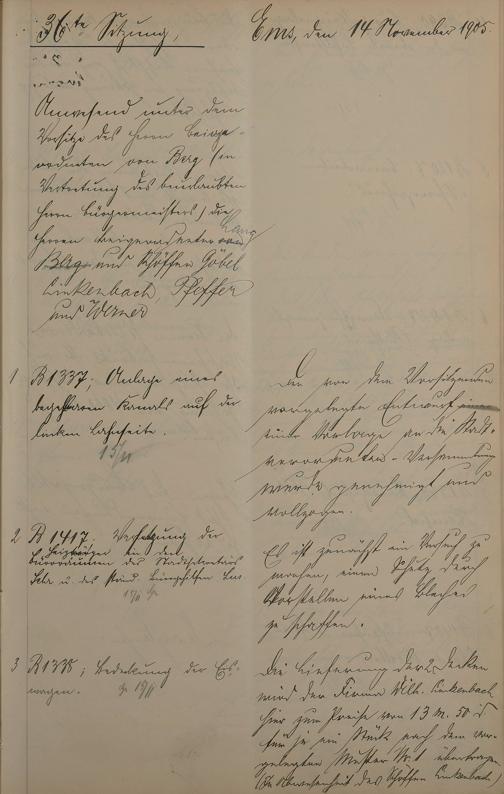 36te Sitzung,
Ems, den 14 November 1905.
Anwesend unter dem
Vorsitze des Herrn Beige-
ordneten von Berg (in
Vertretung des beurlaubten
Herrn Bürgermeisters) die
Herren Beigeordneter Lang
und Schöffen Göbel
Linkenbach, Pfeffer
und Werner
1 B1337; Anlage eines
begehbaren Kanals auf der
linken Lahnseite.
13/11
Der von dem Vorsitzenden
vorgelegte Entwurf
einer Vorlage an die Stadt-
verordneten-Versammlung
wurde genehmigt und
vollzogen.
2 B 1417. der
in den
des Stadtsekretärs
u. des
17/11
Es ist zunächst ein Versuch zu
machen, einen Schutz durch
Vorstellen eines Bleches
zu schaffen.
3 B1338; Bedeckung der Eis-
wagen. 19/11
Die Lieferung der 2 Decken
wird der Firma Wilh. Linkenbach
hier zum Preise von 13 M. 50 d
für je ein Stück nach dem vor-
gelegten Muster Nr. 1 übertragen
(In Abwesenheit des Schöffen Linkenbach)